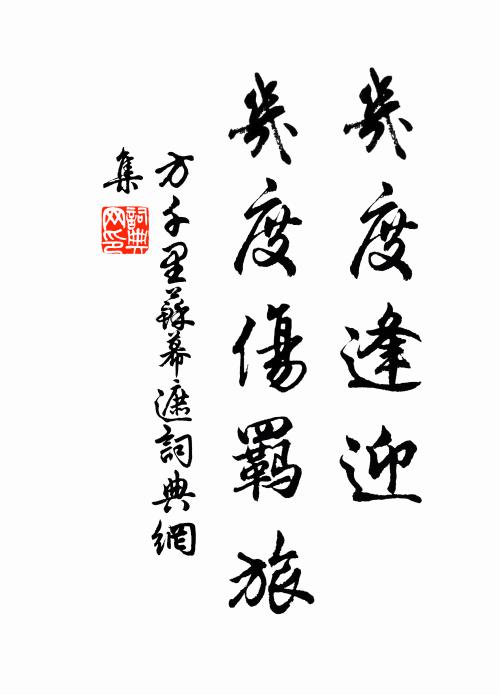 幾度逢迎
幾度傷羈旅
方千里蘇幕遮詞典網
集
詞典网印